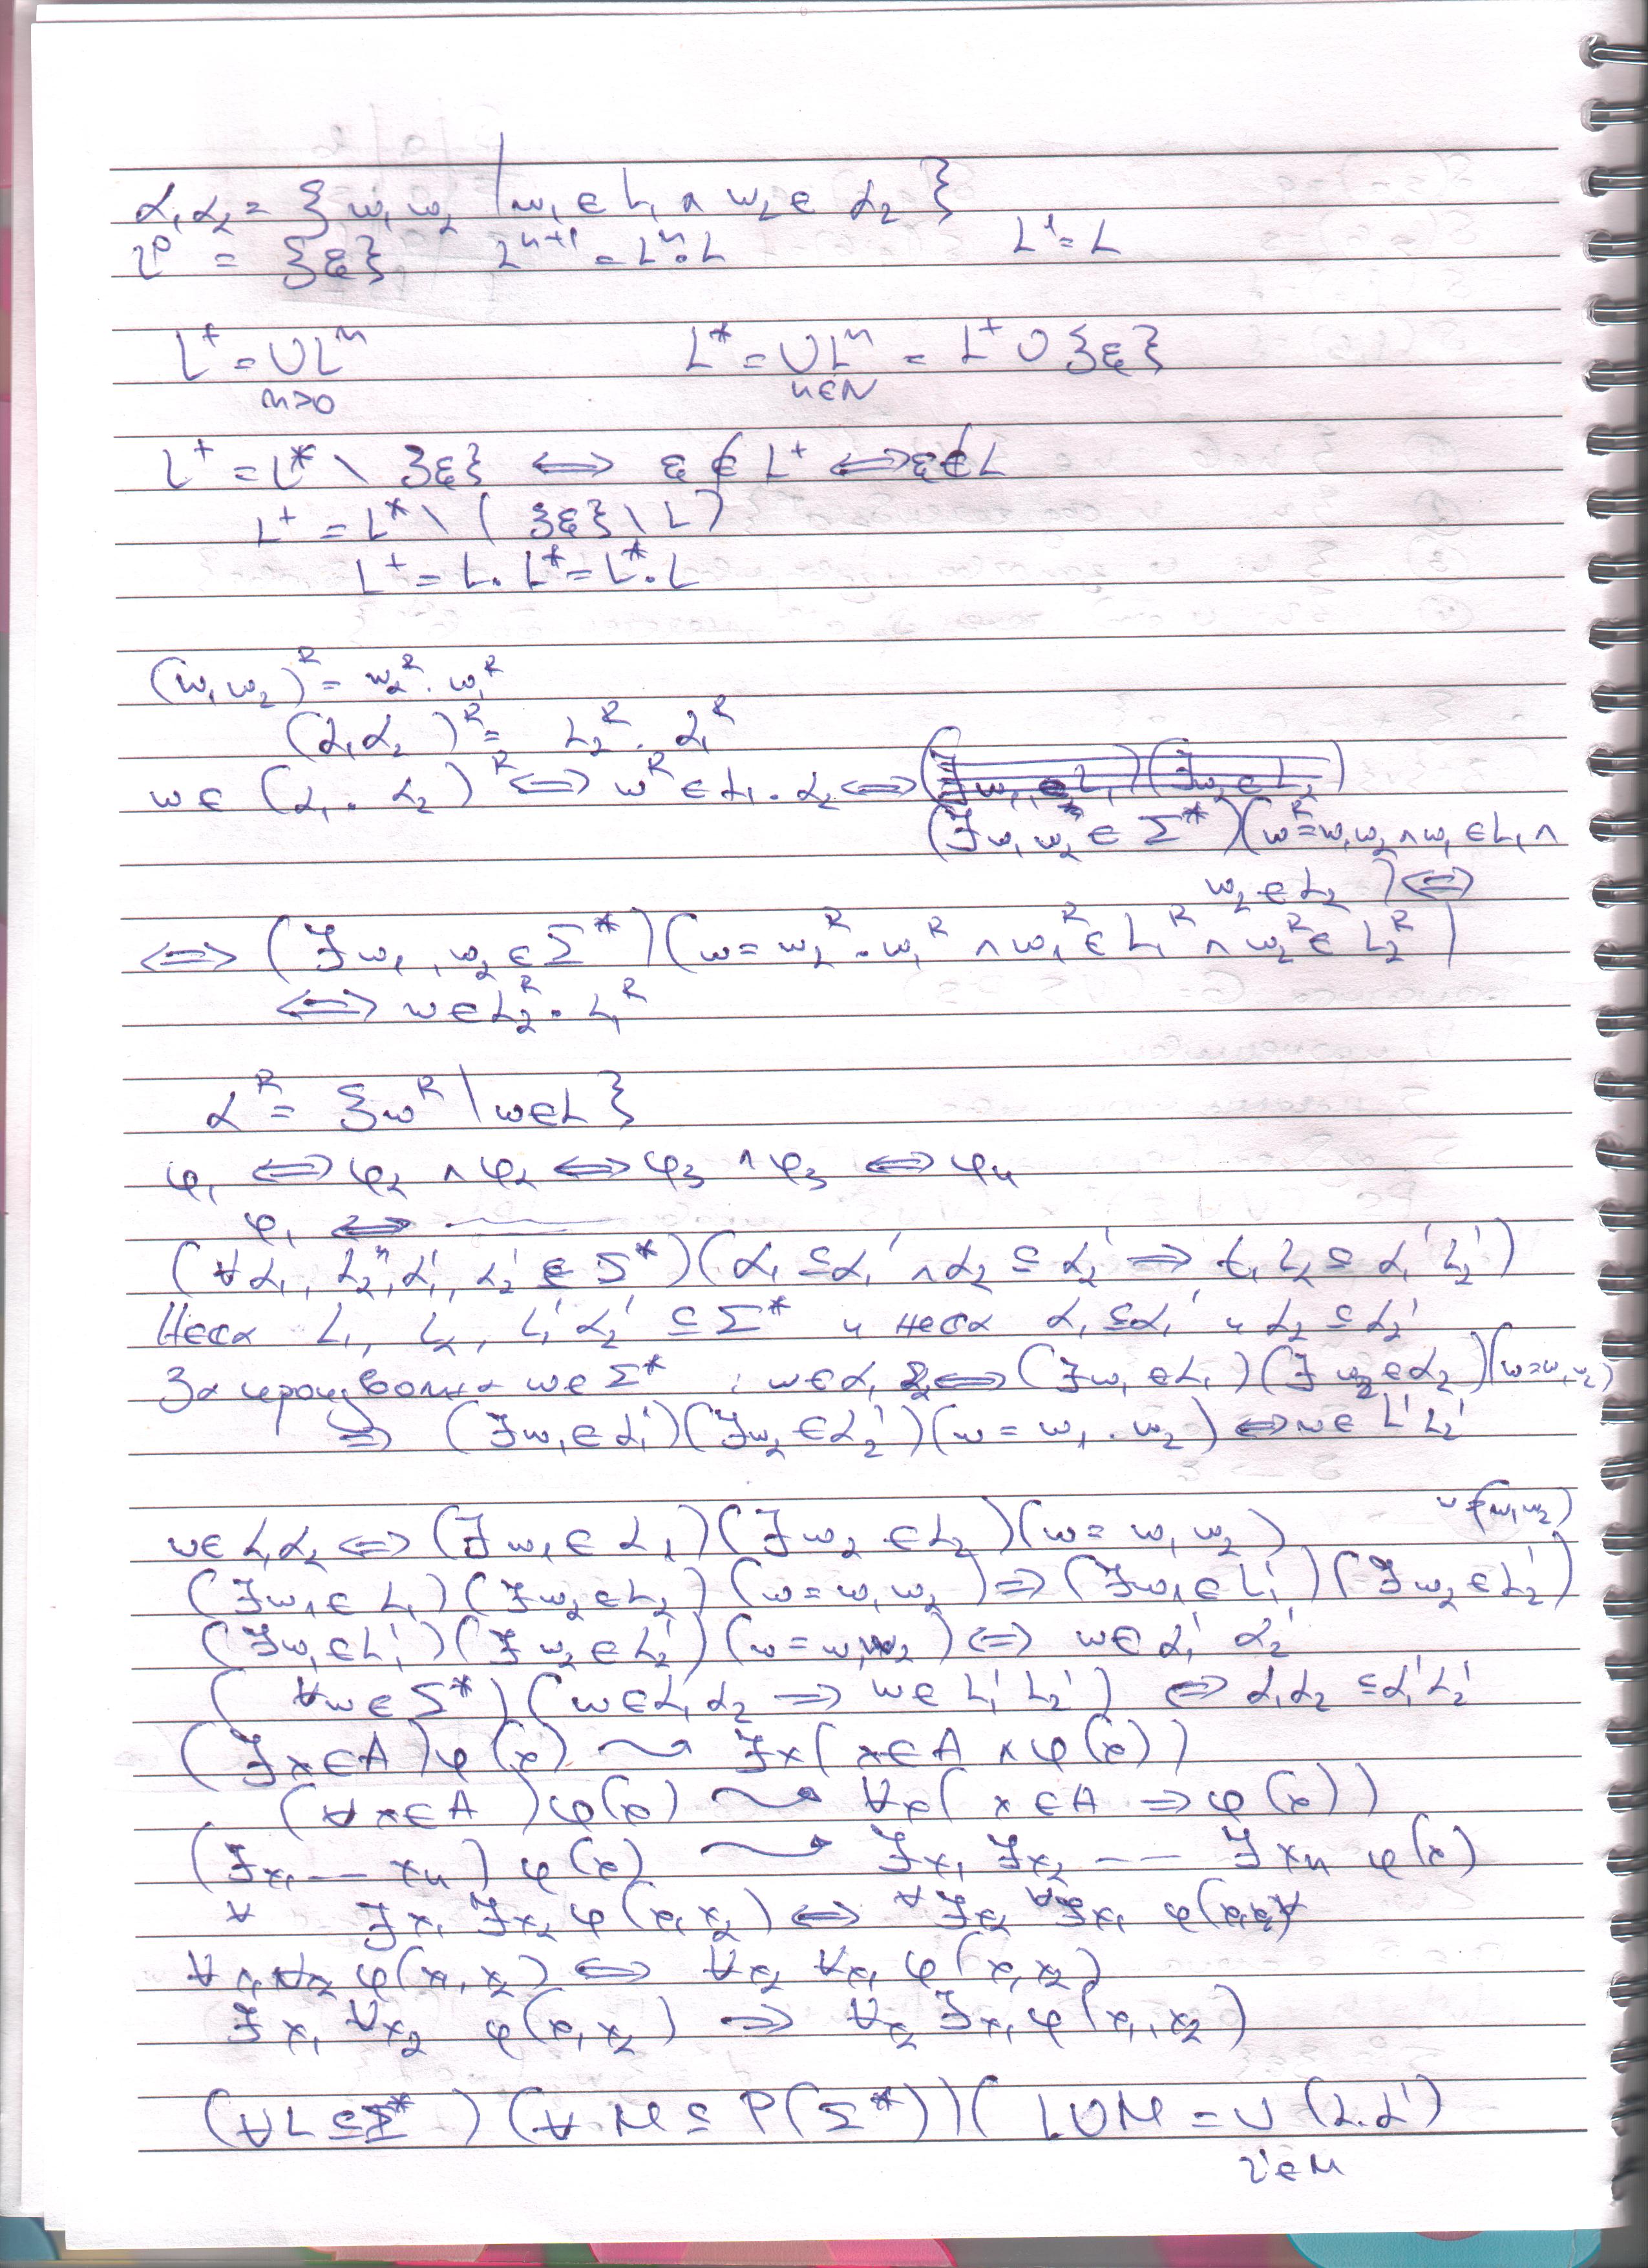 L₁L₂ = {w₁w₂ | w₁ ∈ L₁ ∧ w₂ ∈ L₂}
L⁰ = {ε} Lⁿ⁺¹ = Lⁿ.L L¹ = L
L⁺ = ∪Lⁿ L* = ∪Lⁿ = L⁺ ∪ {ε}
n>0 n∈N
L⁺ = L* \ {ε} ⟺ ε ∉ L⁺ ⟺ ε ∉ L
L⁺ = L* \ ({ε} \ L)
L⁺ = L. L* = L*. L
(w₁w₂)ᴿ = w₂ᴿ . w₁ᴿ
(L₁L₂)ᴿ = L₂ᴿ . L₁ᴿ
w ∈ (L₁ . L₂)ᴿ ⟺ wᴿ ∈ L₁ . L₂ ⟺
(∃w₁w₂ ∈ Σ*)(wᴿ = w₁w₂ ∧ w₁ ∈ L₁ ∧
w₂ ∈ L₂) ⟺
⟺ (∃w₁, w₂ ∈ Σ*)(w = w₂ᴿ . w₁ᴿ ∧ w₁ᴿ ∈ L₁ᴿ ∧ w₂ᴿ ∈ L₂ᴿ)
⟺ w ∈ L₂ᴿ . L₁ᴿ
Lᴿ = {wᴿ | w∈L}
φ₁ ⟺ φ₂ ∧ φ₂ ⟺ φ₃ ∧ φ₃ ⟺ φ₄
φ₁ ⟺
(∀L₁, L₂, L₁', L₂' ⊆ Σ*)(L₁ ⊆ L₁' ∧ L₂ ⊆ L₂' ⟹ L₁L₂ ⊆ L₁'L₂')
Нека L₁, L₂, L₁' L₂' ⊆ Σ* и нека L₁ ⊆ L₁' и L₂ ⊆ L₂'
За произволна w ∈ Σ* : w ∈ L₁L₂ ⟺ (∃w₁ ∈ L₁)(∃w₂ ∈ L₂)(w = w₁w₂)
⟹ (∃w₁ ∈ L₁')(∃w₂ ∈ L₂')(w = w₁ . w₂) ⟺ w ∈ L'L₂'
w ∈ L₁L₂ ⟺ (∃w₁ ∈ L₁)(∃w₂ ∈ L₂)(w = w₁w₂)
(∃w₁ ∈ L₁)(∃w₂ ∈ L₂)(w = w₁w₂) ⟹ (∃w₁ ∈ L₁')(∃w₂ ∈ L₂')
(∃w₁ ∈ L₁')(∃w₂ ∈ L₂')(w = w₁w₂) ⟺ w ∈ L₁' L₂'
(∀w ∈ Σ*)(w ∈ L₁L₂ ⟹ w ∈ L₁'L₂') ⟺ L₁L₂ ⊆ L₁'L₂'
(∃x∈A)φ(x) ⇝ ∃x(x∈A ∧ φ(x))
(∀x∈A)φ(x) ⇝ ∀x(x∈A ⟹ φ(x))
(∃x₁ ... xₙ)φ(x) ⇝ ∃x₁ ∃x₂ ... ∃xₙ φ(x)
∀ ∃x₁ ∃x₂ φ(x₁x₂) ⟺ ∃x₂ ∃x₁ φ(x₁x₂)
∀x₁∀x₂ φ(x₁x₂) ⟺ ∀x₂ ∀x₁ φ(x₁x₂)
∃x₁ ∀x₂ φ(x₁x₂) ⟹ ∀x₂ ∃x₁ φ(x₁,x₂)
(∀L⊆Σ*)(∀M ⊆ P(Σ*))(L∪M = ∪(L.L')
L'∈M